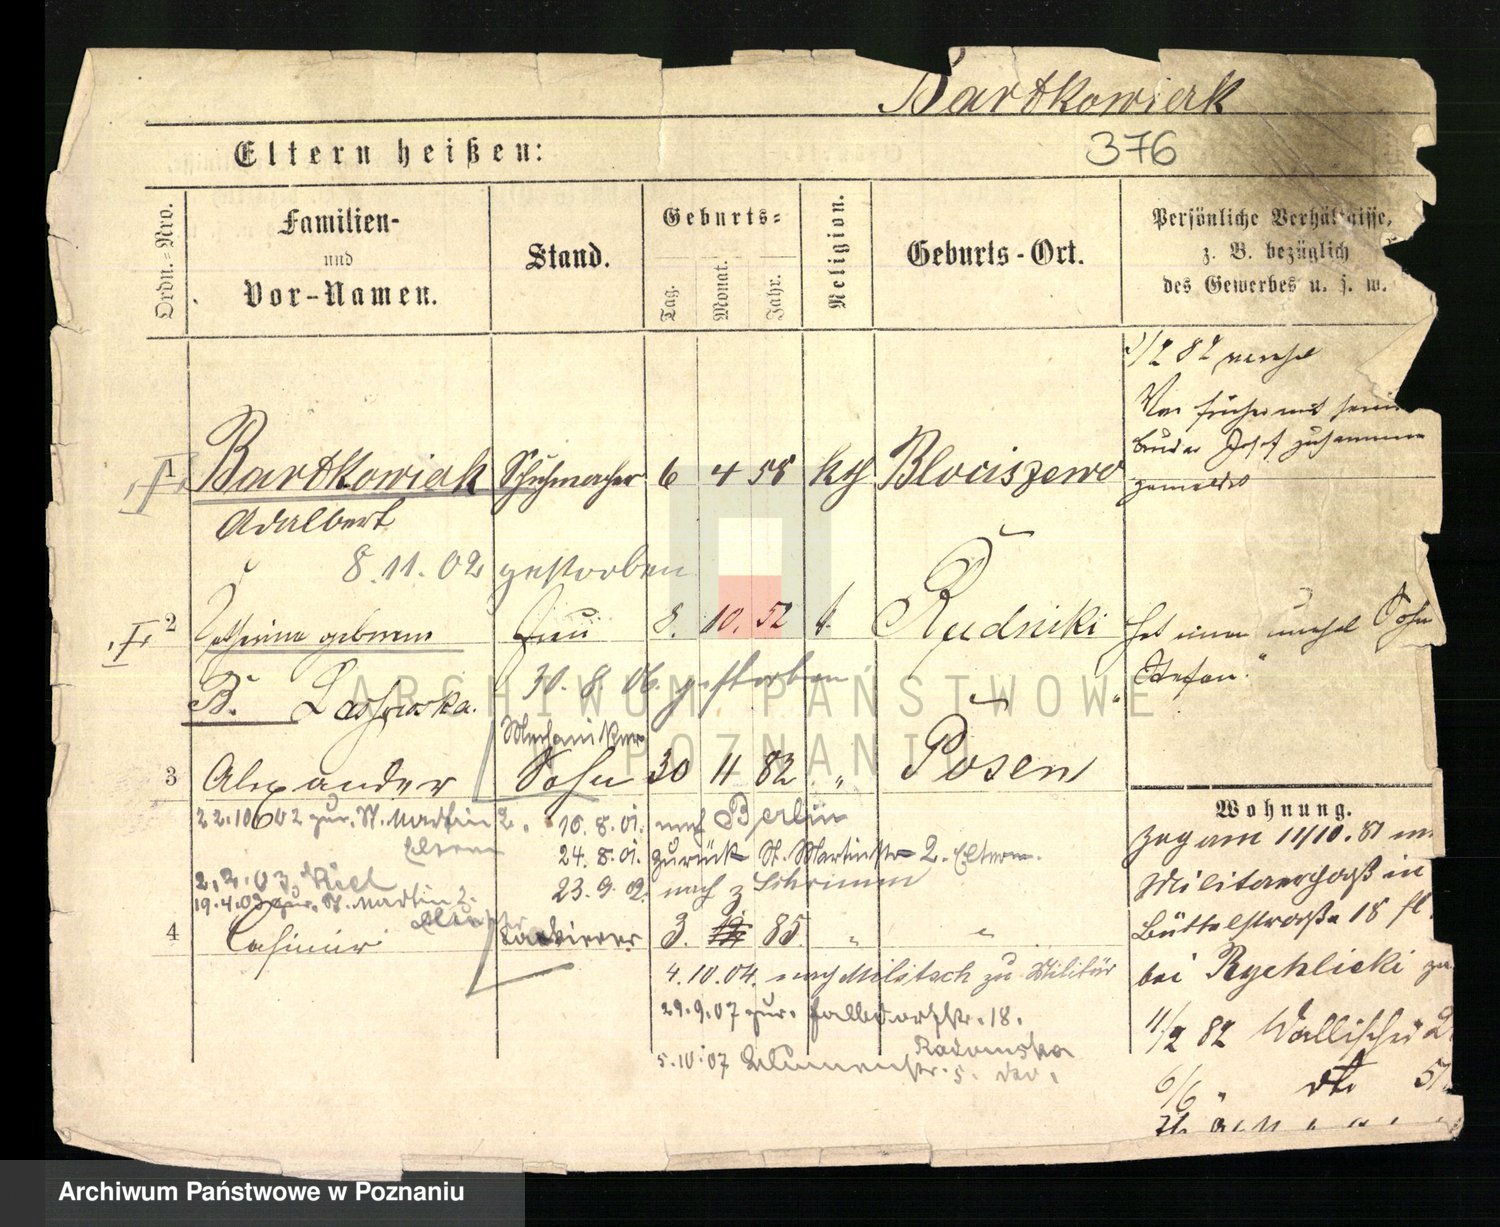 Bartkowiak
376
Eltern heißen:
Ordn.-Nro.
Familien-
und
Vor-Namen.
Stand.
Geburts-
Tag.
Monat.
Jahr.
Religion.
Geburts-Ort.
Persönliche Verhältnisse,
z. B. bezüglich
des Gewerbes u. s. w.
/2 82
Von früher mit seinem
Bruder Josef zusammen
gemeldet
1 Bartkowiak Schuhmacher 6 4 58 kth Blociszewo
Adalbert
8.11.02 gestorben
2 geborene Frau 8. 10. 52 Rudniki
hat einen unehel Sohn
Stefan
B.
30. 8. 06. gestorben
Mechaniker
3 Alexander Sohn 30 11 82 " Posen
22.10.02 zur. St. Martin 2. 10.8.01. nach Berlin
Eltern 24.8.01. zurück St. Martinstr 2. Eltern.
2.2.03. Kiel 23.9.02. nach Schrimm
19.4.03 zur. St. Martin 2.
Eltern
4 Casimir 3. 85 " "
4.10.04. nach Militsch zu Militär
29.9.07 zur. 18.
5.10.07 Blumenstr. 5.
Radomska
Wohnung.
Zog am 11/10. 81 in
Militaerpaß in
Büttelstraße 18
bei Rychlicki
11/2 82 Wallischei 2
6/6 " dto 57
ARCHIWUM PAŃSTWOWE
W POZNANIU
Archiwum Państwowe w Poznaniu